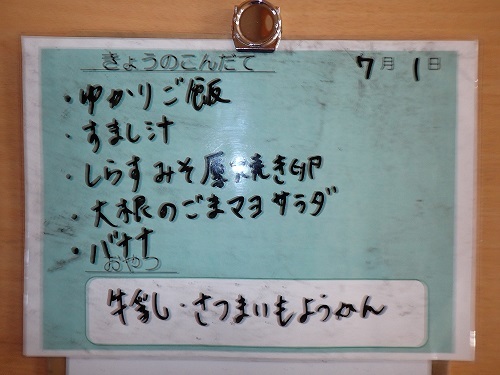 きょうのこんだて 7月1日
・ゆかりご飯
・すまし汁
・しらすみそ厚焼き卵
・大根のごまマヨサラダ
・バナナ
おやつ
牛乳・さつまいもようかん